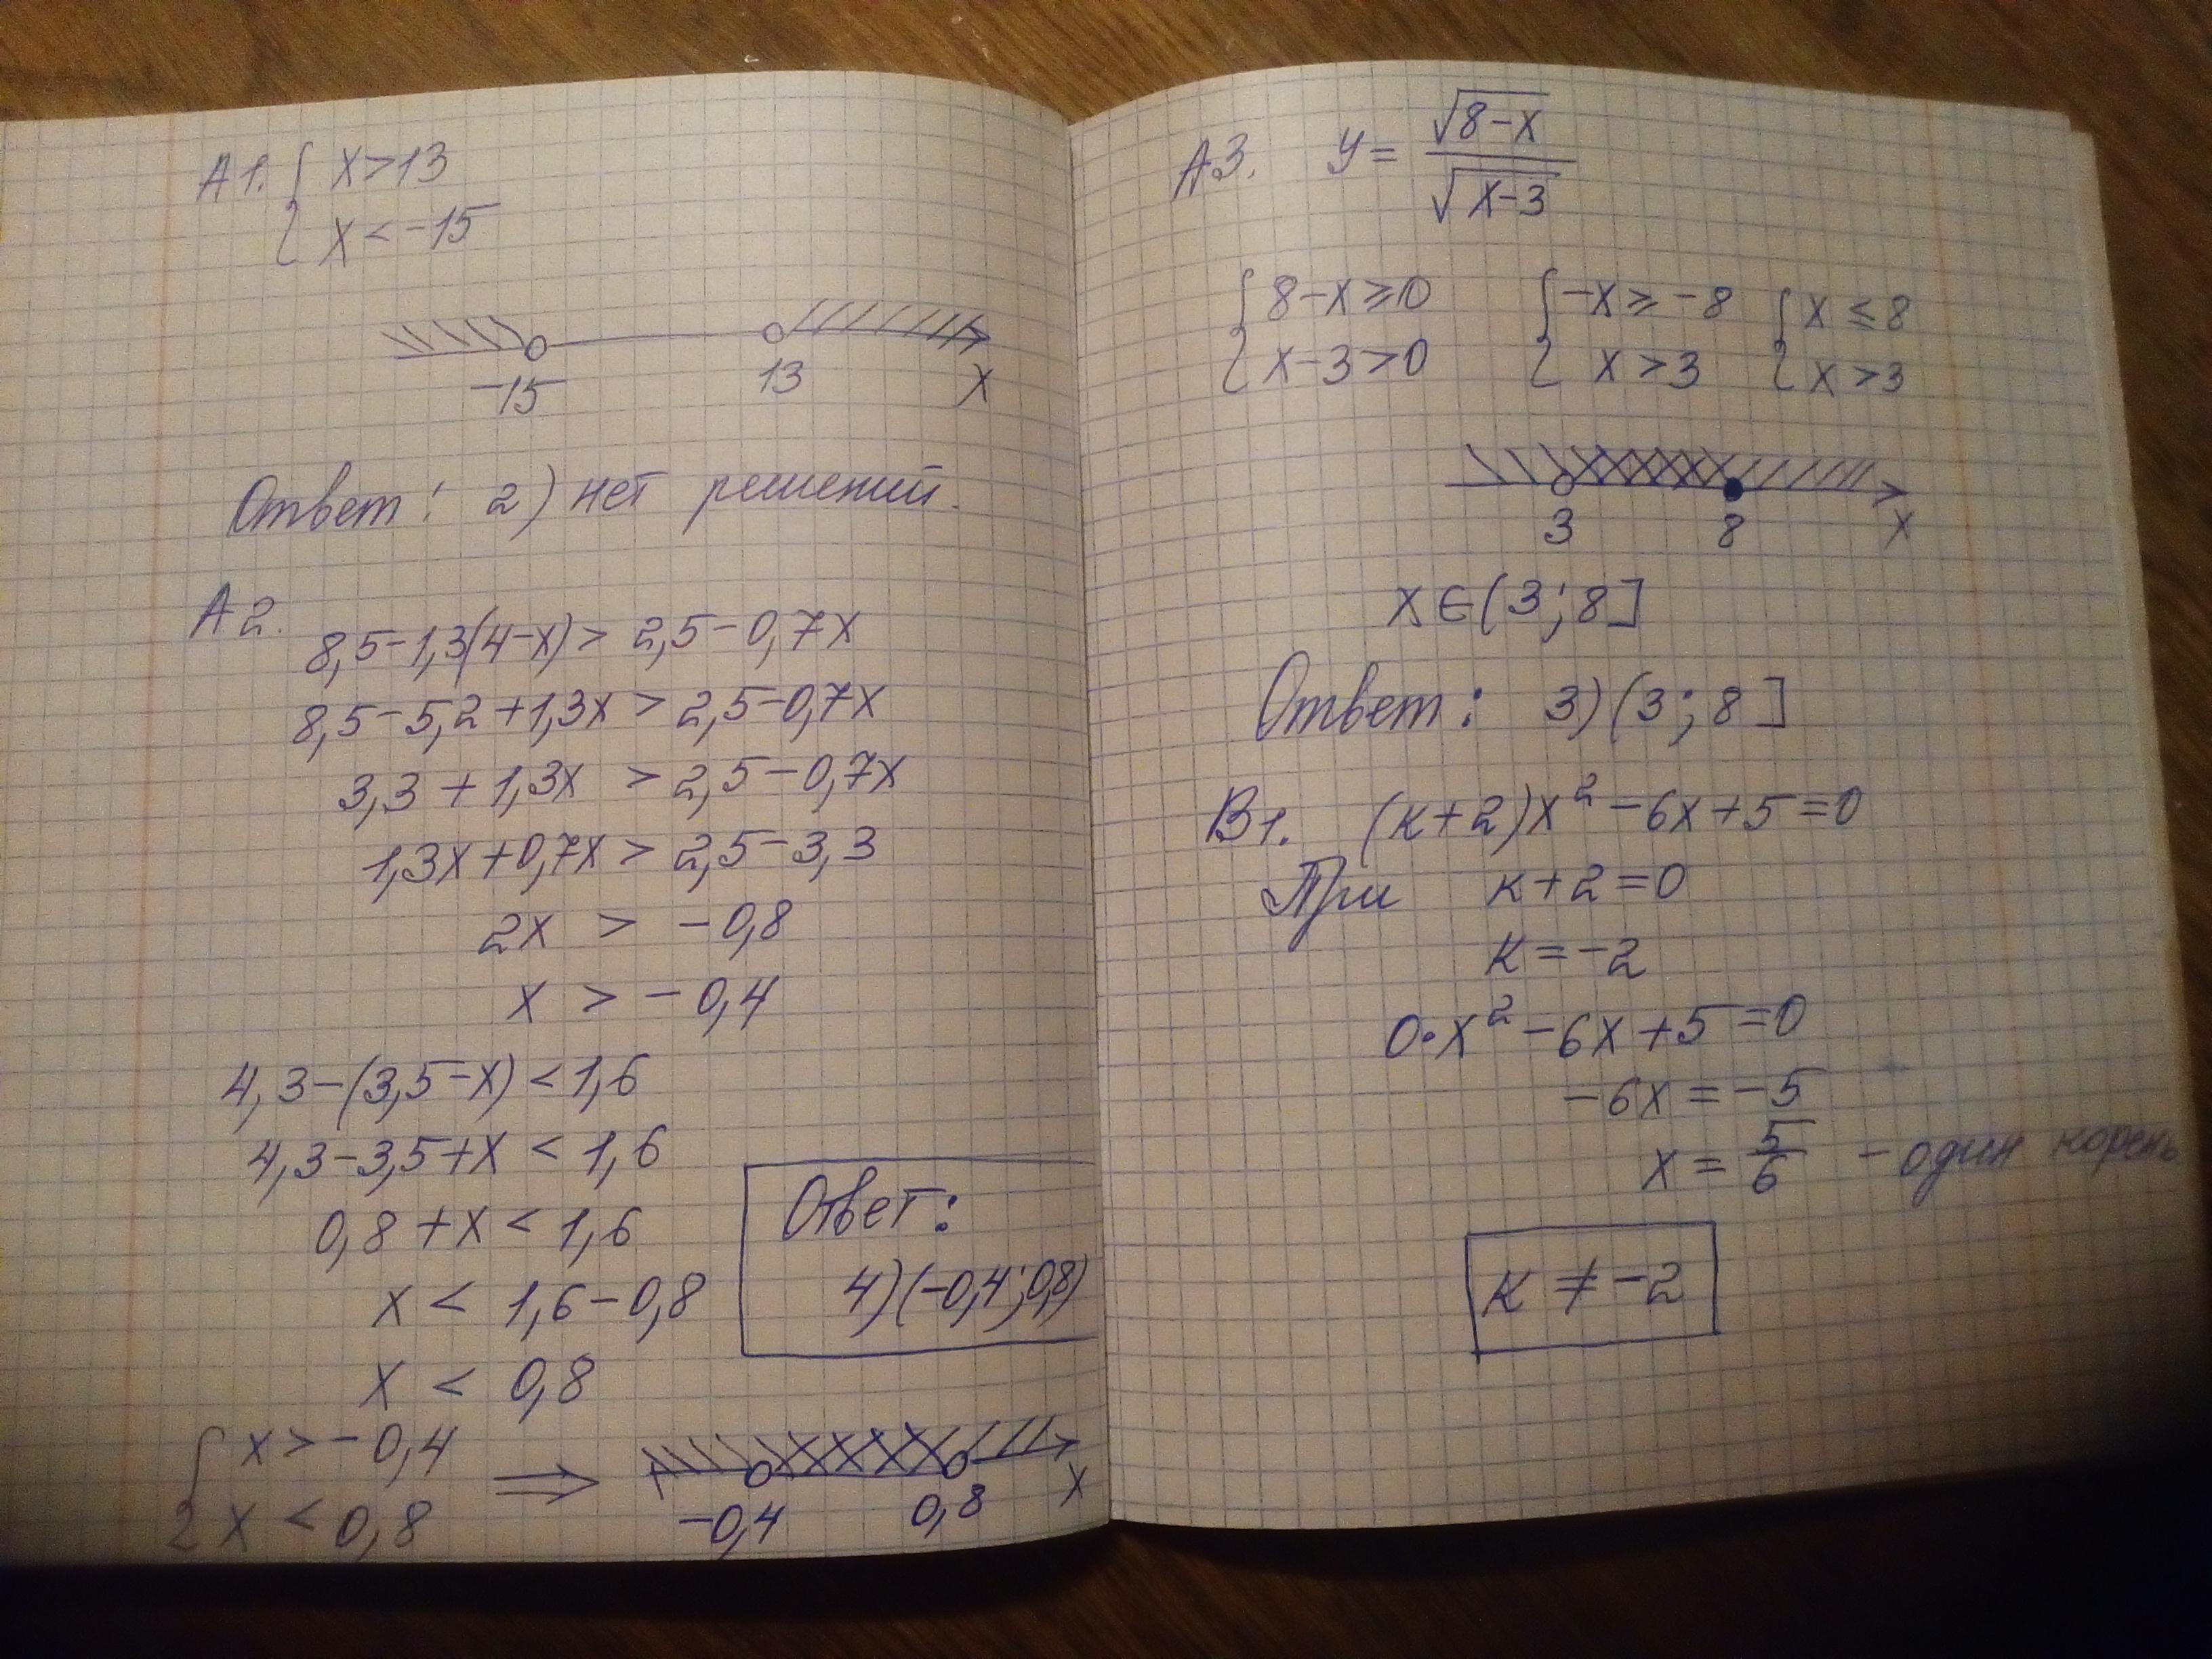 А1. { x>13
x<-15
-15 13 x
Ответ: 2) нет решений.
А2.
8,5-1,3(4-x)> 2,5-0,7x
8,5-5,2+1,3x > 2,5-0,7x
3,3 + 1,3x > 2,5-0,7x
1,3x+0,7x > 2,5-3,3
2x > -0,8
x > -0,4
4,3-(3,5-x)<1,6
4,3-3,5+x < 1,6
0,8+x < 1,6
x < 1,6-0,8
x < 0,8
Ответ:
4) (-0,4;0,8)
{ x>-0,4
x<0,8 ⇒
-0,4 0,8 x
А3. y= √8-x / √x-3
{ 8-x≥0 { -x≥-8 { x≤8
x-3>0 x>3 x>3
3 8 x
x∈(3;8]
Ответ: 3) (3;8]
В1. (к+2)x²-6x+5=0
При к+2=0
к=-2
0•x²-6x+5=0
-6x=-5
x=5/6 - один корень
к≠-2